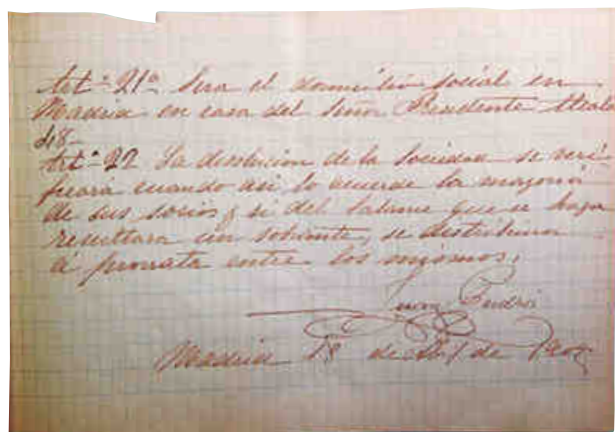 Art.º 21º Sera el domicilio social en
Madrid en casa del Señor Presidente Alcalá
Art.º 22 La disolucion de la Sociedad se veri-
ficará cuando asi lo acuerde la mayoria
de sus socios y si del balance que se haga
resultara un sobrante, se distribuira
á prorrata entre los mismos.
Juan Padrós
Madrid 18 de de 1902